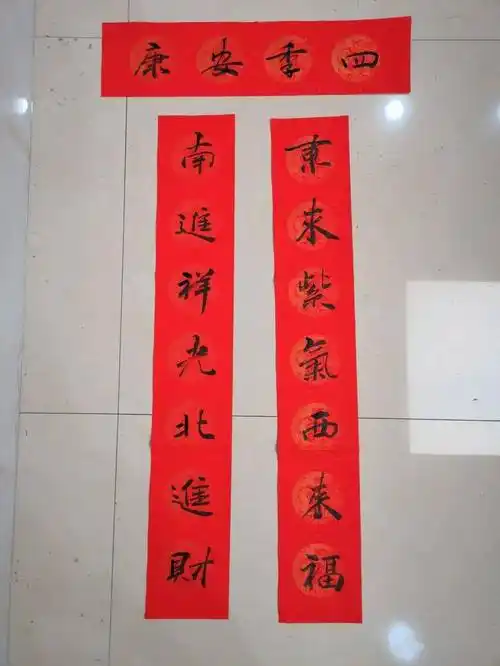 四季安康
東来紫氣西来福
南進祥光北進財